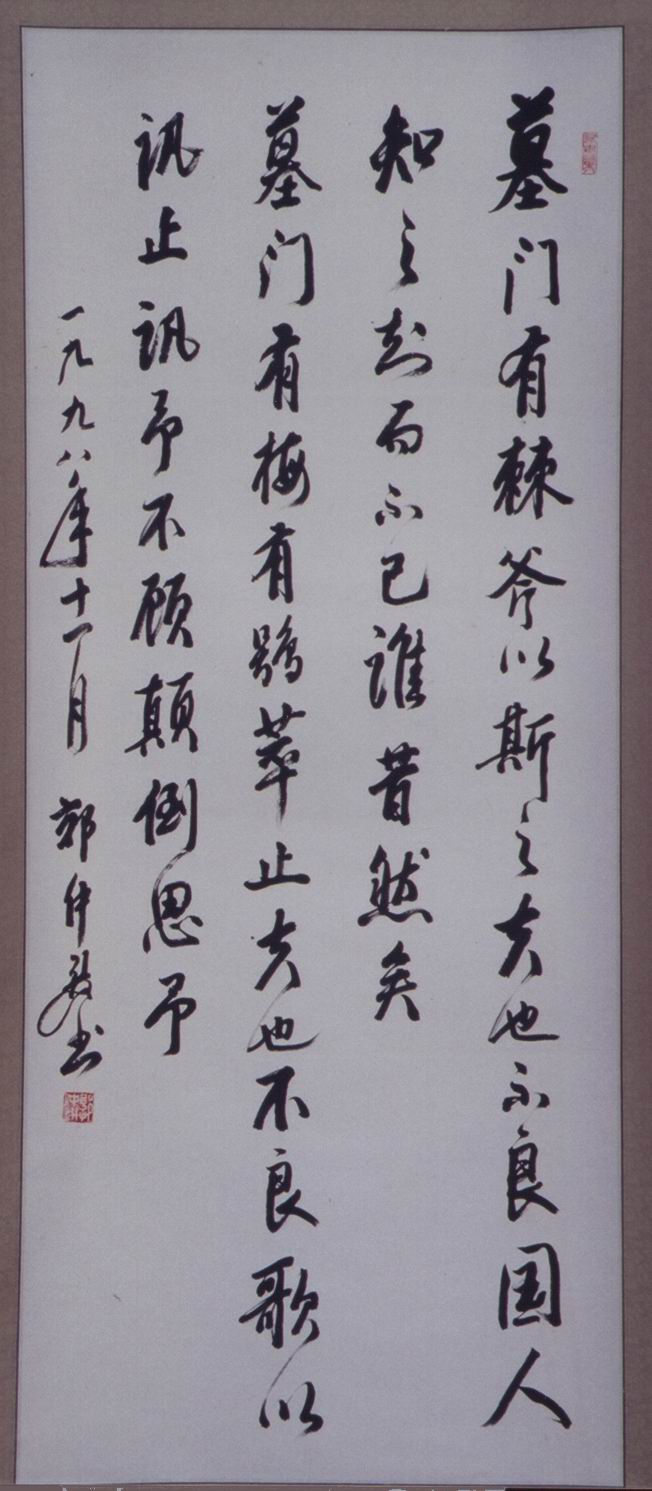 墓门有棘斧以斯之夫也不良国人
知之知而不已谁昔然矣
墓门有梅有鸮萃止夫也不良歌以
讯止讯予不顾颠倒思予
一九九八年十一月 郭仲书